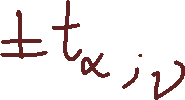 ±t_α;ν